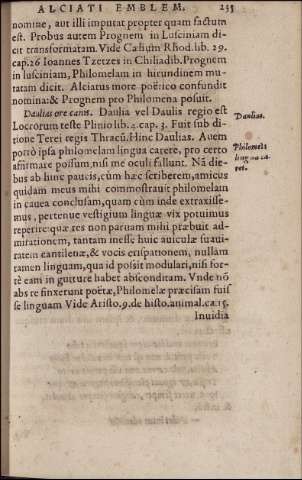 ALCIATI EMBLEM. 235
nomine, aut illi imputat propter quam factum
est. Probus autem Prognem in Lusciniam di
cit transformatam. Vide Cælium Rhod. lib. 29.
cap. 26 Ioannes Tzetzes in Chiliadib. Prognem
in lusciniam, Philomelam in hirundinem mu-
tatam dicit. Alciatus more poëtico confundit
nomina: & Prognem pro Philomena posuit.
Daulias ore canis. Daulia vel Daulis regio est
Locrorum teste Plinio lib. 4. cap. 3. Fuit sub di-
tione Terei regis Thracū. Hinc Daulias. Auem
portò ipsa philomelam lingua carere, pro certo
affirmare possum, nisi me oculi fallunt. Nā die-
bus ab hinc paucis, cùm hæc scriberem, amicus
quidam meus mihi commostrauit philomelam
in cauea conclusam, quam cùm inde extraxisse-
mus, pertenue vestigium linguæ vix potuimus
reperire: quæ res non paruam mihi præbuit ad-
mirationem, tantam inesse huic auiculæ suaui-
tatem cantilenæ, & vocis crispationem, nullam
tamen linguam, qua id possit modulari, nisi for-
tè eam in gutture habet absconditam. Vnde nō
abs re finxerunt poëtæ, Philomelæ præcisam fuis
se linguam Vide Aristo. 9. de histo. animal. ca. 15.
Inuidia
Daulias.
Philomela
lingua ca-
ret.